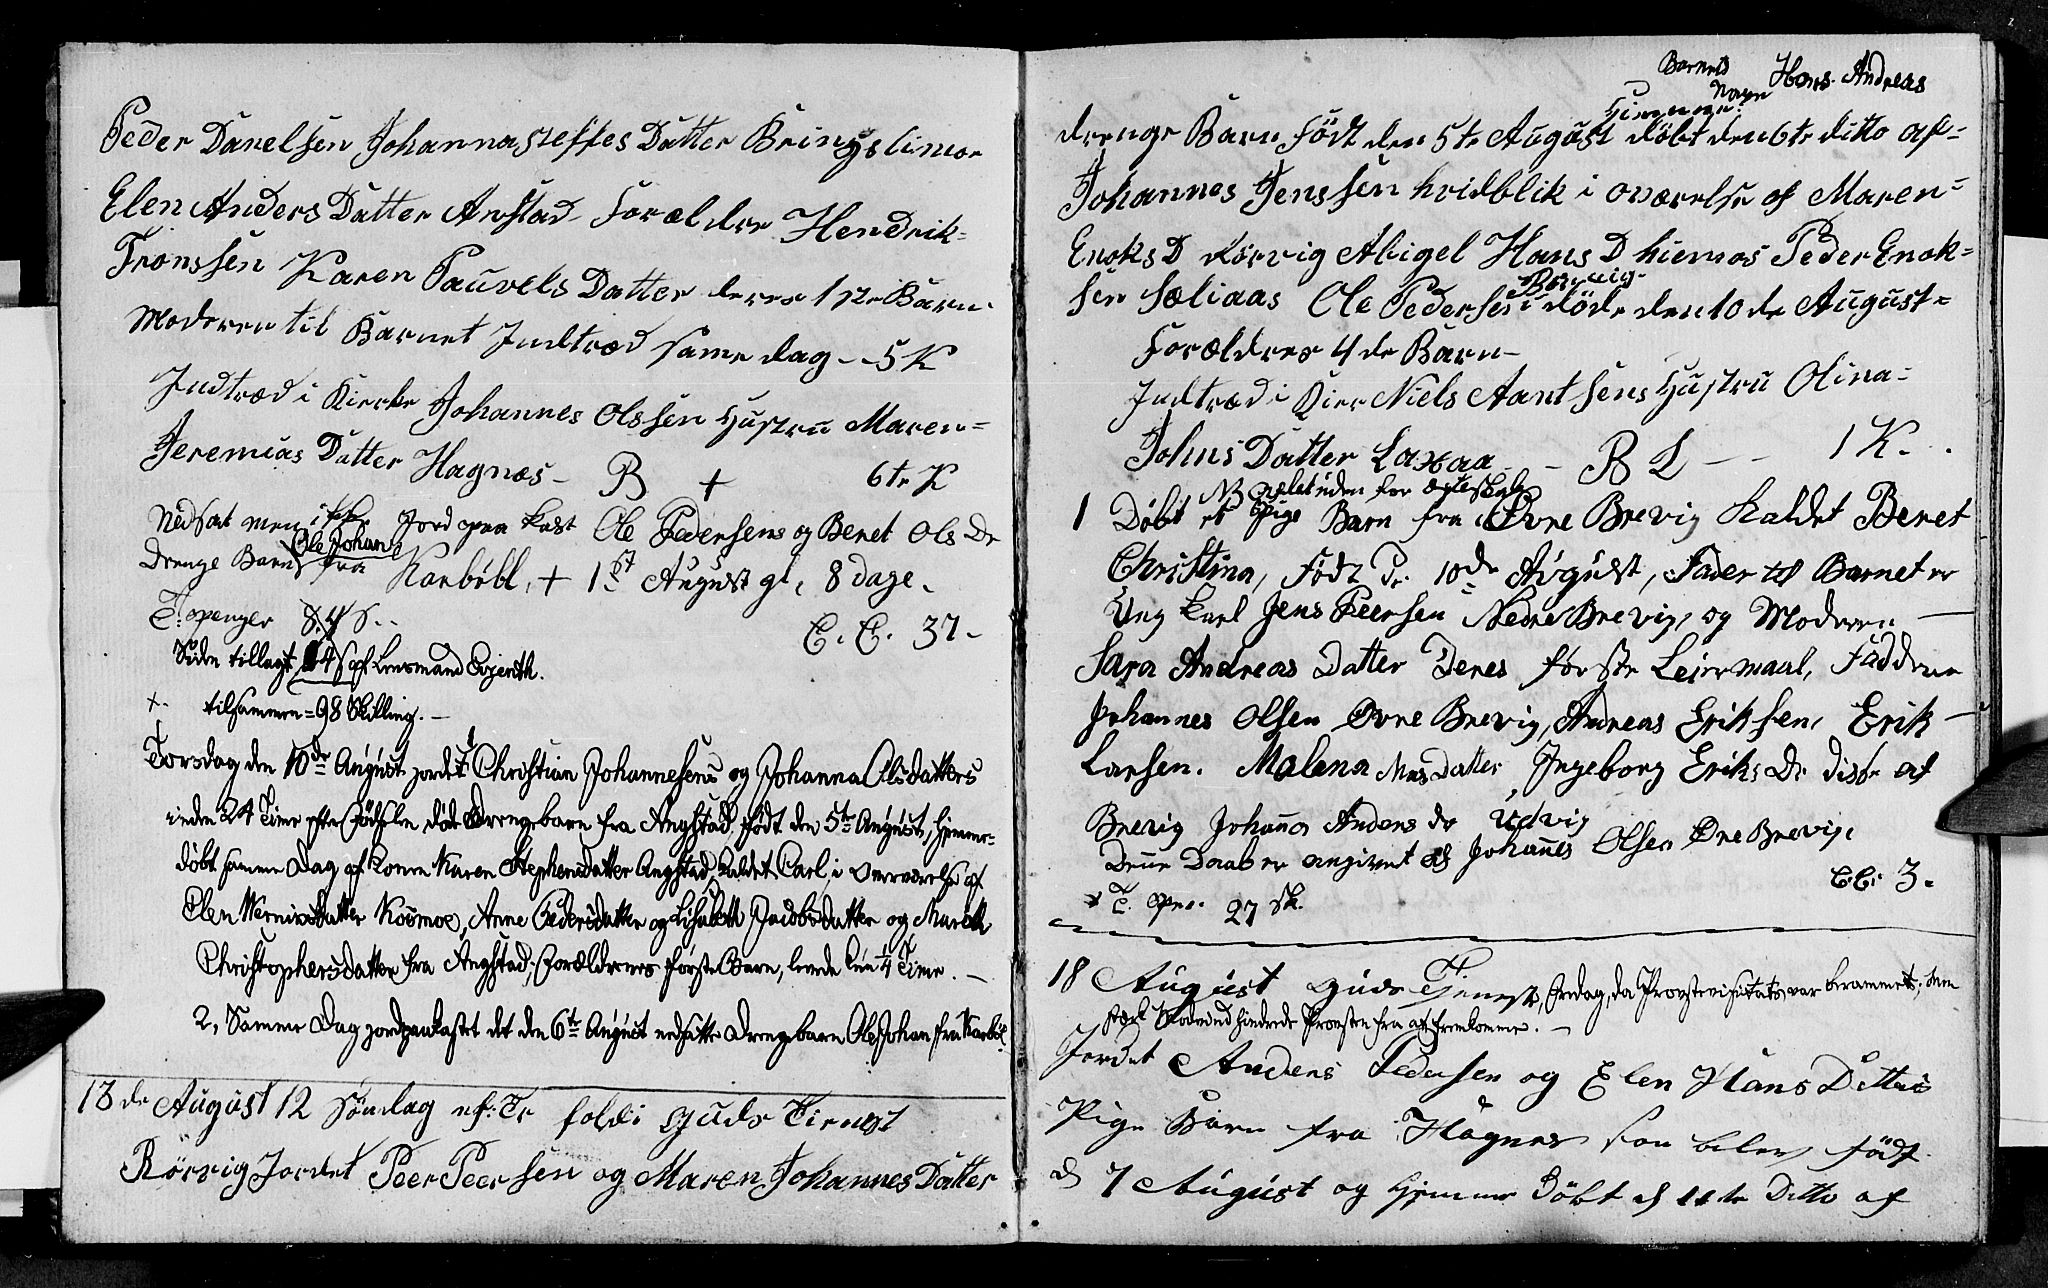 Peder Danelsen Johanna Steffes Datter Bringslimoe
Elen Anders Datter Anstad Forældre Hendrik=
Tronssen Karen Pauvels Datter deres 1ste Barn
Moderen til Barnet Indtræd same dag - 5 K
Indtræd i Kierke Johannes Olssen Hustru Maren=
Jeremias Datter Hagnæs - B + 6te K
Nedsat men ikke Jord paa kast Ole Pedersens og Benet Ols Dr
Drenge Barn Ole Johan fra Karbøhl, + 1st August gl. 8 dage.
T. penger 8.4 S..
C. C. 37.
Siden tillagt 14 S af Lensmand Evjenth.
+ tilsammen = 98 Skilling. -
Torsdag den 10de August jordet Christian Johannesens og Johanna Olsdatters
inden 24 Timer efter Fødselen døde Drengebarn fra Angstad, født den 5te August, hjemme-
døbt samme Dag af Konen Karen Stephensdatter Angstad, kaldet Carl, i Overværelse af
Elen Kosmoe, Anne Pedersdatter og Lisabeth Jacobsdatter og Mareth
Christophersdatter fra Angstad; Forældrenes første Barn, levede kun 1/4 Time. -
2, Samme Dag jordpaakastet det den 6te August nedsatte Drengebarn Ole Johan fra Karbøl.
13de August 12 Søndag ef: Tr holdt Guds Tienest
Rörvig Jordet Peer Peersen og Maren Johannes Datter
Barnets Navn Hans Andreas
Hiemme
drenge Barn Født den 5te August döbt den 6te ditto af=
Johannes Jenssen hvidblik i overelse af Maren=
Enoks D Körvig Abigel Hans D hiemos Peder Enok=
sen Sæliaas Ole Pedersen Börvig döde den 10de August=
Forældres 4de Barn-
Indtræd i Kier Niels Aantsens Hustru Olina=
Johns Datter Laxaa - B L - 1 K.
NB avlet uden for ægteskab
1 Döbt et Pige Barn fra Øvre Brevig Kaldet Beret
Christina, Födt d. 10de August, Fader til Barnet er
Ung Karl Jens Peersen Nedre Brevig, og Moderen
Sara Andreas Datter Deres første Leiermaal, Faddere
Johannes Olsen Øvre Brevig, Andreas Eriksen, Erik
Larsen. Malena Datter, Ingeborg Eriks Dr disse af
Brevig Johana Anders dr Udvig
Denne Daab er angivet af Johannes Olsen Øvre Brevig.
C. C. 3.
+ T. Pen. 27 sk.
18 August Guds Tjeneste, Fredag, da Provstevisitats var berammet; men
stærk Modvind hindrede Provsten fra at fremkomme. -
Jordet Anders Pedersen og Elen Hans Datters
Pige Barn fra Hagnes som blev født
d 7 August og Hjemme Döbt d 11te Ditto af